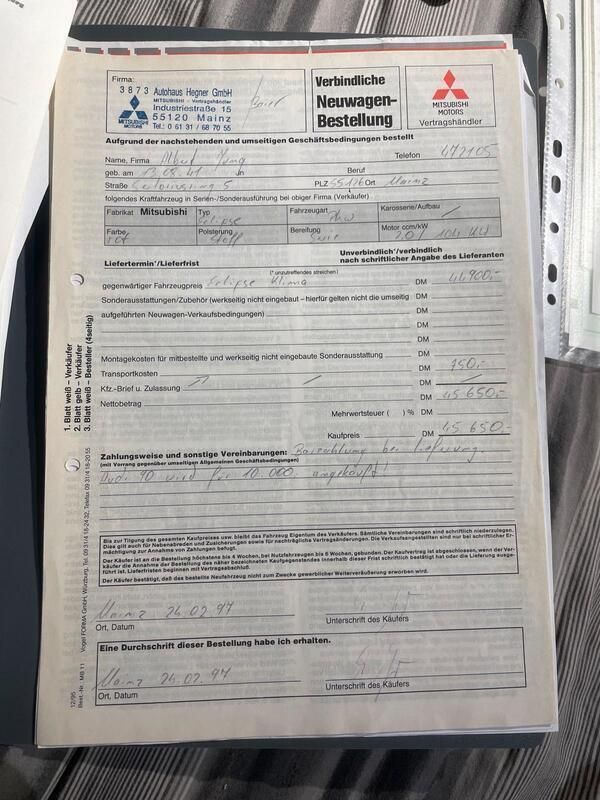 Firma:
3873 Autohaus Hegner GmbH
MITSUBISHI - Vertragshändler
Industriestraße 15
55120 Mainz
Tel.: 0 61 31 / 68 70 55
MITSUBISHI
MOTORS
Verbindliche
Neuwagen-
Bestellung
MITSUBISHI
MOTORS
Vertragshändler
Aufgrund der nachstehenden und umseitigen Geschäftsbedingungen bestellt
Name, Firma Albert Jung Telefon 472105
geb. am 13.08.41 in Beruf
Straße 5 PLZ 55126 Ort Mainz
folgendes Kraftfahrzeug in Serien-/Sonderausführung bei obiger Firma (Verkäufer)
Fabrikat Mitsubishi Typ Eclipse Fahrzeugart Pkw Karosserie/Aufbau /
Farbe rot Polsterung Stoff Bereifung Serie Motor ccm/kW 2,0 / 104 KW
Liefertermin*/Lieferfrist Unverbindlich*/verbindlich
nach schriftlicher Angabe des Lieferanten
(* unzutreffendes streichen)
gegenwärtiger Fahrzeugpreis Eclipse Klima DM 44900,-
Sonderausstattungen/Zubehör (werkseitig nicht eingebaut – hierfür gelten nicht die umseitig DM
aufgeführten Neuwagen-Verkaufsbedingungen) DM
DM
DM
Montagekosten für mitbestellte und werkseitig nicht eingebaute Sonderausstattung DM
Transportkosten DM 750,-
Kfz.-Brief u. Zulassung DM
Nettobetrag DM 45 650,-
Mehrwertsteuer ( ) % DM
Kaufpreis DM 45 650,-
Zahlungsweise und sonstige Vereinbarungen: Barzahlung bei Lieferung.
(mit Vorrang gegenüber umseitigen Allgemeinen Geschäftsbedingungen)
Audi 90 wird für 10.000,- angekauft!
Bis zur Tilgung des gesamten Kaufpreises usw. bleibt das Fahrzeug Eigentum des Verkäufers. Sämtliche Vereinbarungen sind schriftlich niederzulegen.
Dies gilt auch für Nebenabreden und Zusicherungen sowie für nachträgliche Vertragsänderungen. Die Verkaufsangestellten sind nur bei schriftlicher Er-
mächtigung zur Annahme von Zahlungen befugt.
Der Käufer ist an die Bestellung höchstens bis 4 Wochen, bei Nutzfahrzeugen bis 6 Wochen, gebunden. Der Kaufvertrag ist abgeschlossen, wenn der Ver-
käufer die Annahme der Bestellung des näher bezeichneten Kaufgegenstandes innerhalb dieser Frist schriftlich bestätigt hat oder die Lieferung ausge-
führt ist. Lieferfristen beginnen mit Vertragsabschluß.
Der Käufer bestätigt, daß das bestellte Neufahrzeug nicht zum Zwecke gewerblicher Weiterveräußerung erworben wird.
Mainz 24.02.97
Ort, Datum Unterschrift des Käufers
Eine Durchschrift dieser Bestellung habe ich erhalten.
Mainz 24.02.97
Ort, Datum Unterschrift des Käufers
1. Blatt weiß – Verkäufer
2. Blatt gelb – Verkäufer
3. Blatt weiß – Besteller (4seitig)
Vogel FORMA GmbH, Würzburg, Tel. 09 31/4 18-24 32, Telefax 09 31/4 18-20 55
12/95
Best.-Nr. MB 11